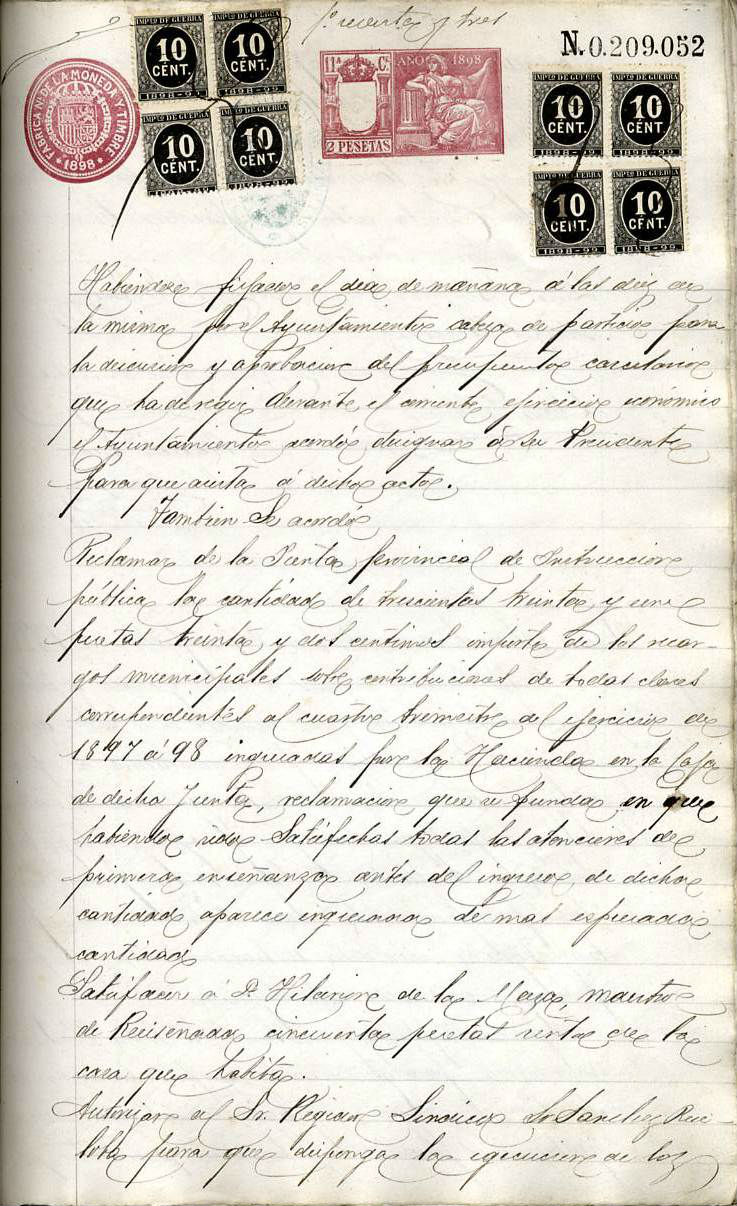 cincuenta y tres
N. 0.209.052
FABRICA NL DE LA MONEDA Y TIMBRE
* 1898 *
IMPTO DE GUERRA
10
CENT.
1898-99
IMPTO DE GUERRA
10
CENT.
1898-99
IMPTO DE GUERRA
10
CENT.
1898-99
IMPTO DE GUERRA
10
CENT.
1898-99
11ª C.
AÑO 1898
2 PESETAS
IMPTO DE GUERRA
10
CENT.
1898-99
IMPTO DE GUERRA
10
CENT.
1898-99
IMPTO DE GUERRA
10
CENT.
1898-99
IMPTO DE GUERRA
10
CENT.
1898-99
Habiendose fijado el dia de mañana á las diez de
la misma por el Ayuntamiento cabeza de partido para
la discusion y aprobacion del presupuesto carcelario
que ha de regir durante el corriente ejercicio económico
el Ayuntamiento acordó designar á su Presidente
para que asista á dicho acto.
Tambien se acordó
Reclamar de la Junta provincial de Instruccion
pública la cantidad de trescientas treinta y una
pesetas treinta y dos centimos importe de los recar-
gos municipales sobre contribuciones de todas clases
correspondientes al cuarto trimestre del ejercicio de
1897 á 98 ingresadas por la Hacienda en la Caja
de dicha Junta, reclamacion que se funda en que
habiendo sido satisfechas todas las atenciones de
primera enseñanza antes del ingreso de dicha
cantidad aparece ingresada de mas espresada
cantidad
Satisfacer á D. Hilarion de la Maza, maestro
de cincuenta pesetas renta de la
casa que habita.
Autorizar al Sr. Regidor Sindico Sanchez
para que disponga la egecucion de los